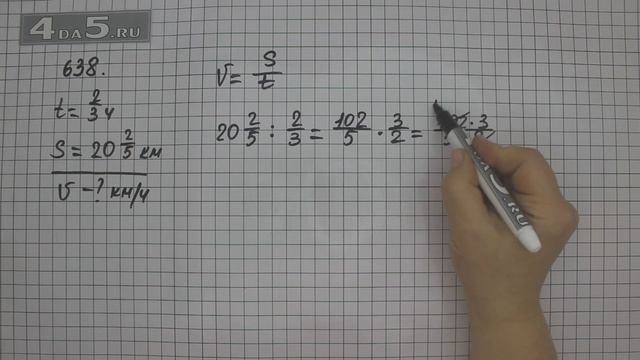 4DA5.RU
638.
t = 2/3 ч
S = 20 2/5 км
V - ? км/ч
V = S/t
20 2/5 : 2/3 = 102/5 · 3/2 =
5.RU